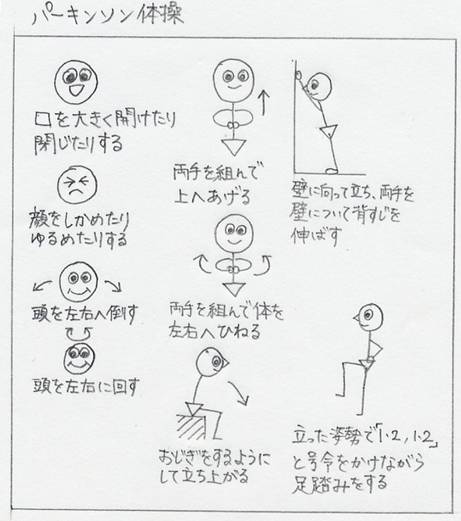 パーキンソン体操
口を大きく開けたり
閉じたりする
顔をしかめたり
ゆるめたりする
頭を左右へ倒す
頭を左右に回す
両手を組んで
上へあげる
両手を組んで体を
左右へひねる
おじぎをするように
して立ち上がる
壁に向って立ち、両手を
壁について背すじを
伸ばす
立った姿勢で「1・2,1・2」
と号令をかけながら
足踏みをする